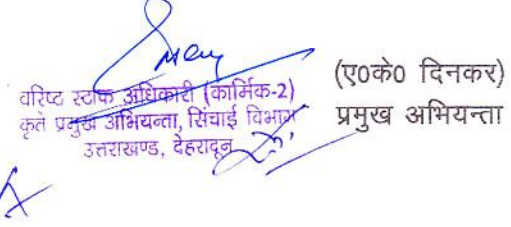 वरिष्ट स्टाफ अधिकारी (कार्मिक-2)
कृते प्रमुख अभियन्ता, सिंचाई विभाग
उत्तराखण्ड, देहरादून
(ए०के० दिनकर)
प्रमुख अभियन्ता